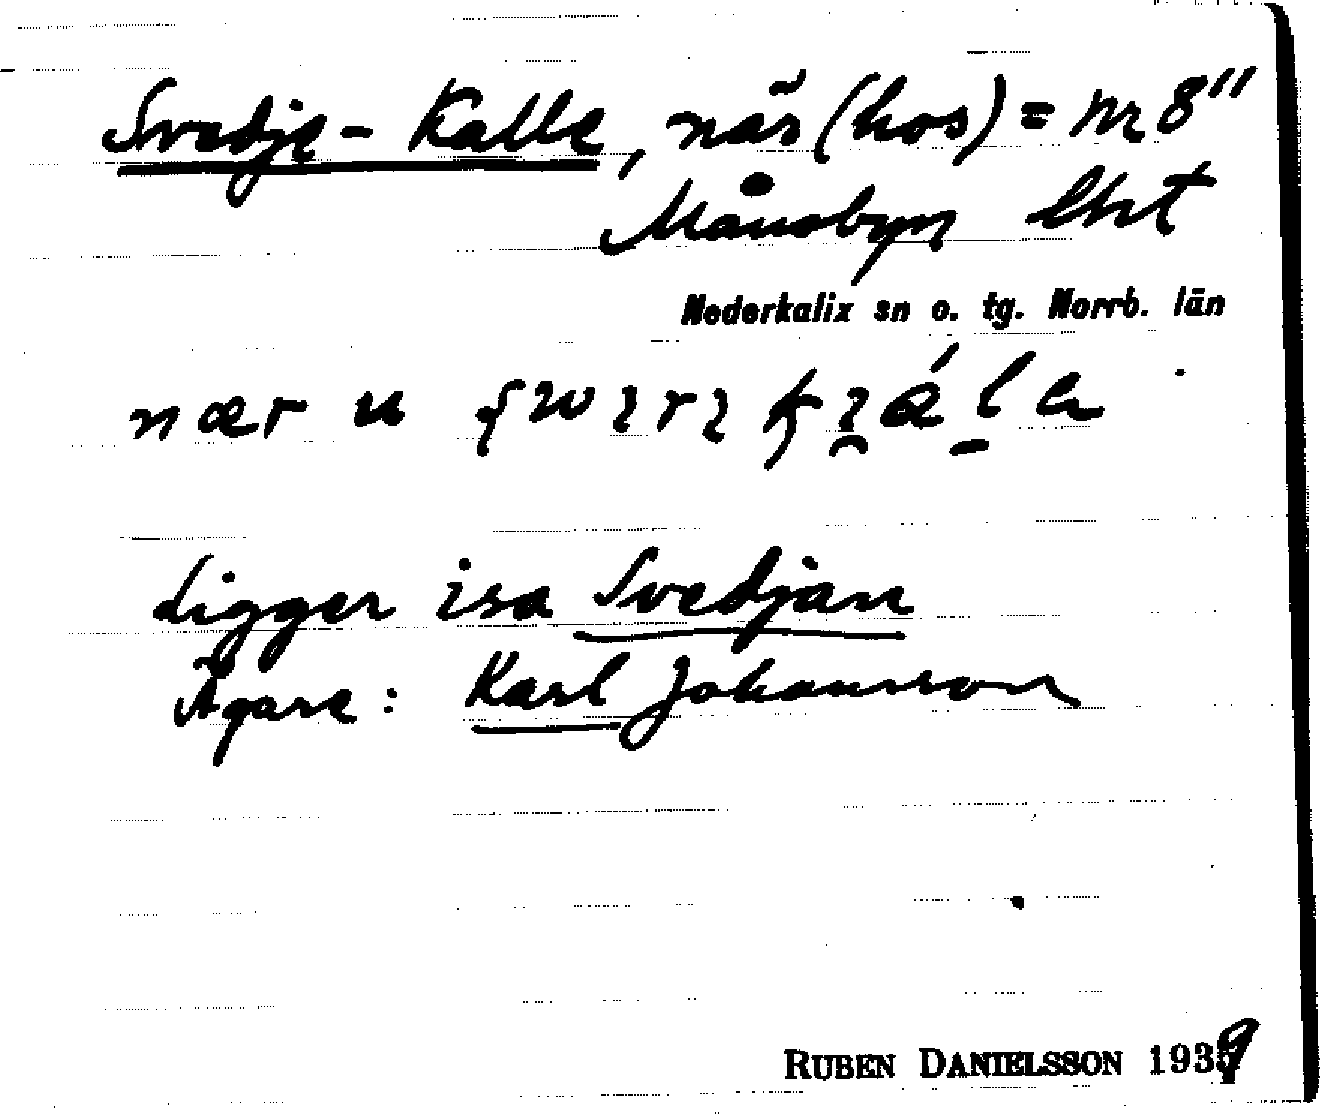 Svedje-Kalle, när (hos) = nr 8"
Månsbyn
Nederkalix sn o. tg. Norrb. län
nær u
Ligger isa Svedjan
Ägare: Karl Johansson
RUBEN DANIELSSON 1939